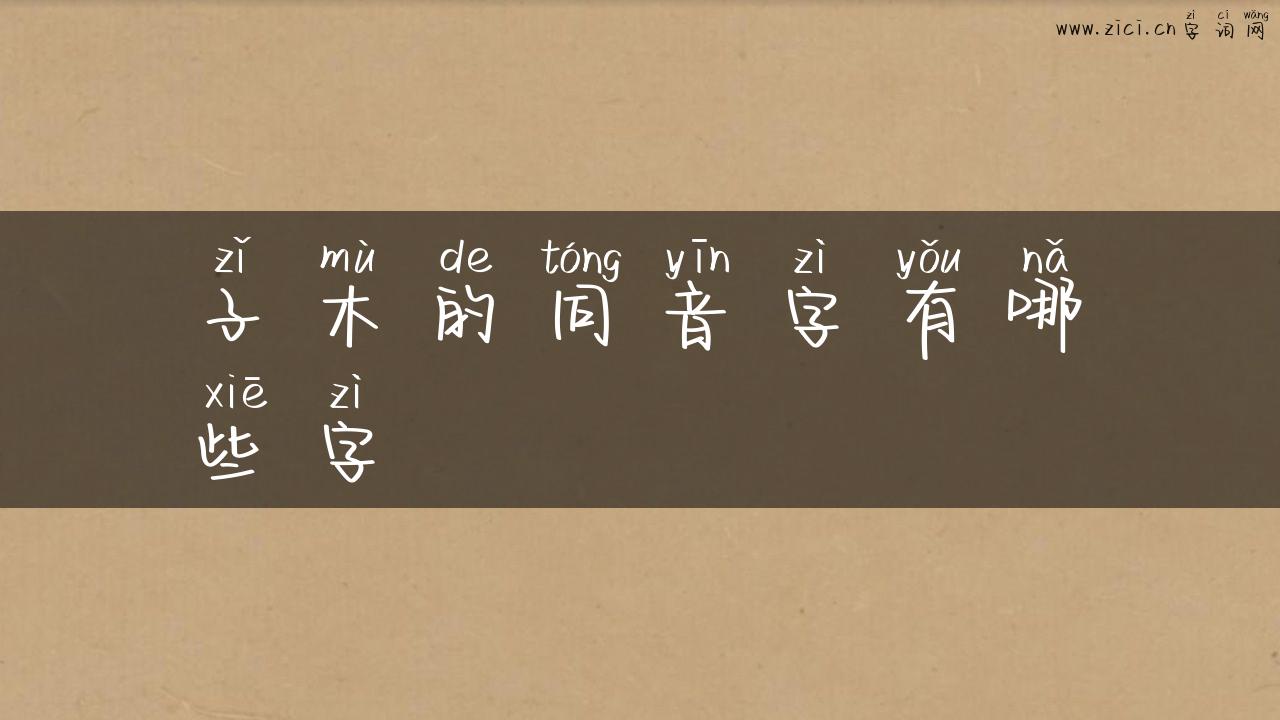 zì cí wǎng
www.zici.cn 字词网
zǐ mù de tóng yīn zì yǒu nǎ
子木的同音字有哪
xiē zì
些字